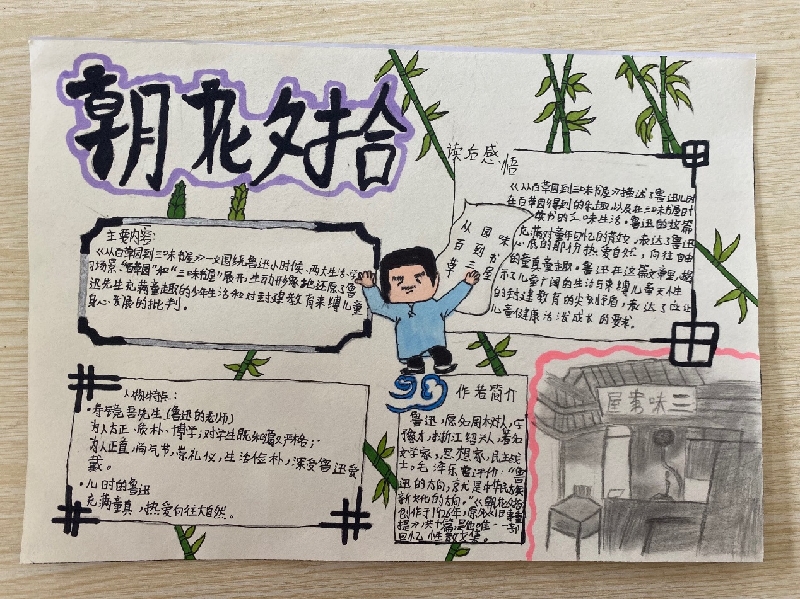 朝花夕拾
主要内容:
《从百草园到三味书屋》一文围绕鲁迅小时候,两大生活学
习场景,"百草园"和"三味书屋"展示,生动形象地还原了鲁
迅先生充满童趣的少年生活和对封建教育束缚儿童
身心发展的批判。
人物特点:
·寿镜吾先生(鲁迅的老师)
为人方正、质朴、博学,对学生既
为人正直,尚气节,崇礼仪,生活俭朴,深受鲁迅爱
戴。
·儿时的鲁迅
充满童真,热爱向往大自然。
从百草
园到三
味书屋
读后感悟
《从百草园到三味书屋》描述了鲁迅儿时
在百草园得到的乐趣以及在三味书屋时
读书的三味生活。鲁迅的故篇
充满对童年回忆的
心底的那份热爱自然,向往自由
的童真童趣。鲁迅在这篇文章里,揭
示了儿童广阔的生活与束缚儿童天性
的封建教育的尖锐矛盾,表达了应让
儿童健康活泼成长的要求。
作者简介
鲁迅,原名周树人,字
豫才,浙江绍兴人,著名
文学家,思想家,民主战
士。毛泽东曾评价:"鲁
迅的方向,就是中华民族
新文化的方向。"《朝花夕拾》
创作于1926年,原名《旧事重
提》,共十篇,是他唯一一部
回忆性散文集。
屋書味三